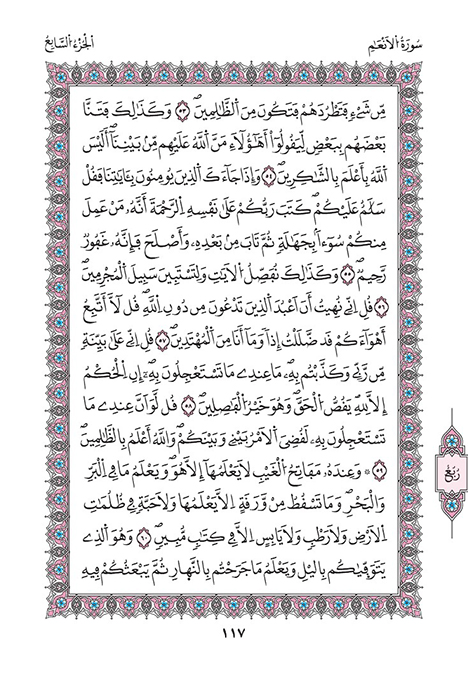 سُورَةُ الَانْعَامِ
الْجُزْءُ السَّابِعُ
مِّن شَےْءٖ فَتَطْرُدَهُمْ فَتَكُونَ مِنَ اَلظَّٰلِمِينَۖ ٥٣ وَكَذَٰلِكَ فَتَنَّا
بَعْضَهُم بِبَعْضٖ لِّيَقُولُوٓاْ أَهَٰٓؤُلَآءِ مَنَّ اَللَّهُ عَلَيْهِم مِّنۢ بَيْنِنَآۖ أَلَيْسَ
اَللَّهُ بِأَعْلَمَ بِالشَّٰكِرِينَۖ ٥٤ وَإِذَا جَآءَكَ اَلذِينَ يُومِنُونَ بِـَٔايَٰتِنَا فَقُلْ
سَلَٰمٌ عَلَيْكُمْۖ كَتَبَ رَبُّكُمْ عَلَىٰ نَفْسِهِ اِلرَّحْمَةَ أَنَّهُۥ مَنْ عَمِلَ
مِنكُمْ سُوٓءاَۢ بِجَهَٰلَةٖ ثُمَّ تَابَ مِنۢ بَعْدِهِۦ وَأَصْلَحَ فَإِنَّهُۥ غَفُورٞ
رَّحِيمٞۖ ٥٥ وَكَذَٰلِكَ نُفَصِّلُ اُلَايَٰتِ وَلِتَسْتَبِينَ سَبِيلَ اَلْمُجْرِمِينَۖ
٥٦ قُلِ اِنِّے نُهِيتُ أَنَ اَعْبُدَ اَلذِينَ تَدْعُونَ مِن دُونِ اِللَّهِۖ قُل لَّآ أَتَّبِعُ
أَهْوَآءَكُمْ قَد ضَّلَلْتُ إِذاٗ وَمَآ أَنَا مِنَ اَلْمُهْتَدِينَۖ ٥٧ قُلِ اِنِّے عَلَىٰ بَيِّنَةٖ
مِّن رَّبِّے وَكَذَّبْتُم بِهِۦۖ مَا عِندِے مَا تَسْتَعْجِلُونَ بِهِۦٓۖ إِنِ اِلْحُكْمُ
إِلَّا لِلهِۖ يَقُصُّ اُلْحَقَّۖ وَهُوَ خَيْرُ اُلْفَٰصِلِينَۖ ٥٨ قُل لَّوَ اَنَّ عِندِے مَا
تَسْتَعْجِلُونَ بِهِۦ لَقُضِيَ اَلَامْرُ بَيْنِے وَبَيْنَكُمْۖ وَاللَّهُ أَعْلَمُ بِالظَّٰلِمِينَۖ
٥٩ وَعِندَهُۥ مَفَاتِحُ اُلْغَيْبِ لَا يَعْلَمُهَآ إِلَّا هُوَۖ وَيَعْلَمُ مَا فِے اِلْبَرِّ
وَالْبَحْرِۖ وَمَا تَسْقُطُ مِنْ وَّرَقَةٍ اِلَّا يَعْلَمُهَا وَلَا حَبَّةٖ فِے ظُلُمَٰتِ
اِلَارْضِ وَلَا رَطْبٖ وَلَا يَابِسٍ اِلَّا فِے كِتَٰبٖ مُّبِينٖۖ ٦٠ وَهُوَ اَلذِے
يَتَوَفَّيٰكُم بِالَّيْلِ وَيَعْلَمُ مَا جَرَحْتُم بِالنَّهَارِ ثُمَّ يَبْعَثُكُمْ فِيهِ
رُبُعٌ
١١٧